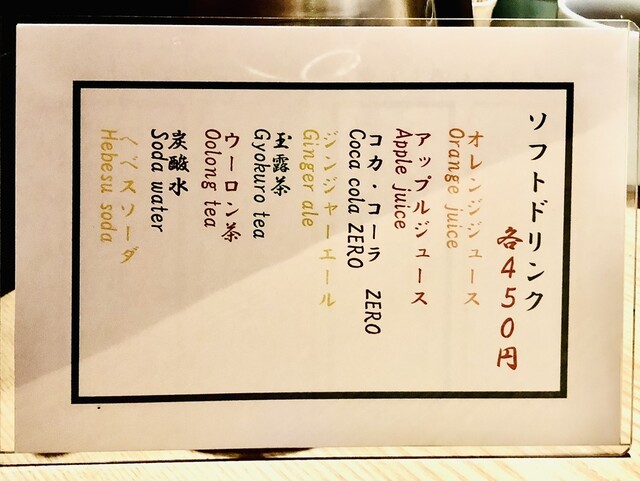 ソフトドリンク
各450円
オレンジジュース
Orange juice
アップルジュース
Apple juice
コカ・コーラ ZERO
Coca cola ZERO
ジンジャーエール
Ginger ale
玉露茶
Gyokuro tea
ウーロン茶
Oolong tea
炭酸水
Soda water
へべスソーダ
Hebesu soda